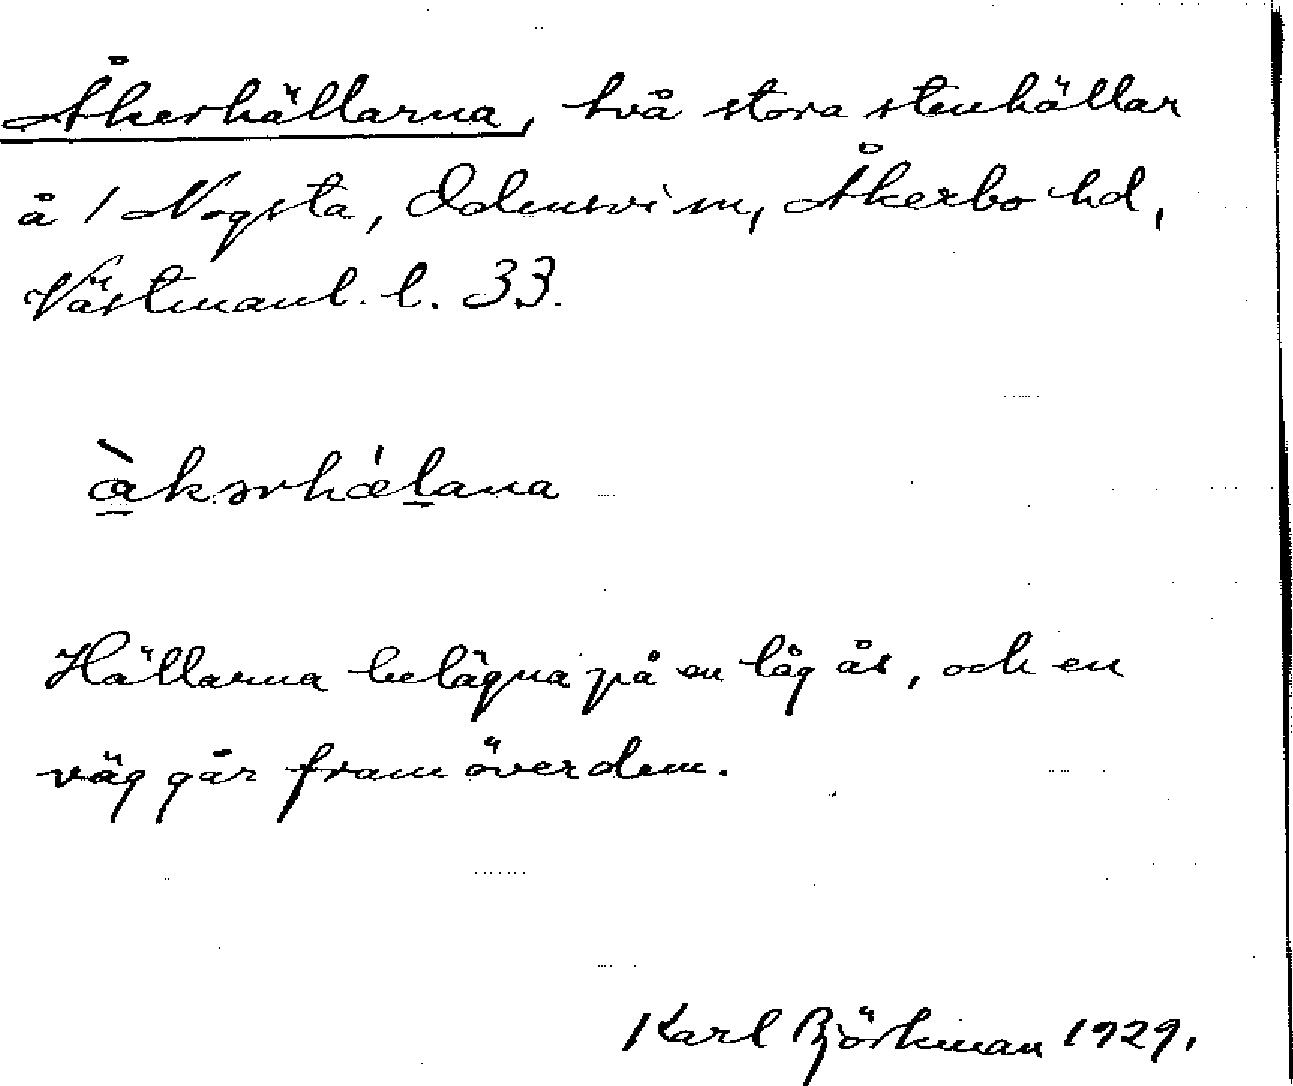 Åkerhällarna, två stora stenhällar
å / Nogsta, Odensvi sn, Åkerbo hd,
Västmanl. l. 33.
àkərhælana
Hällarna belägna på en låg ås, och en
väg går fram över dem.
Karl Björkman 1929.